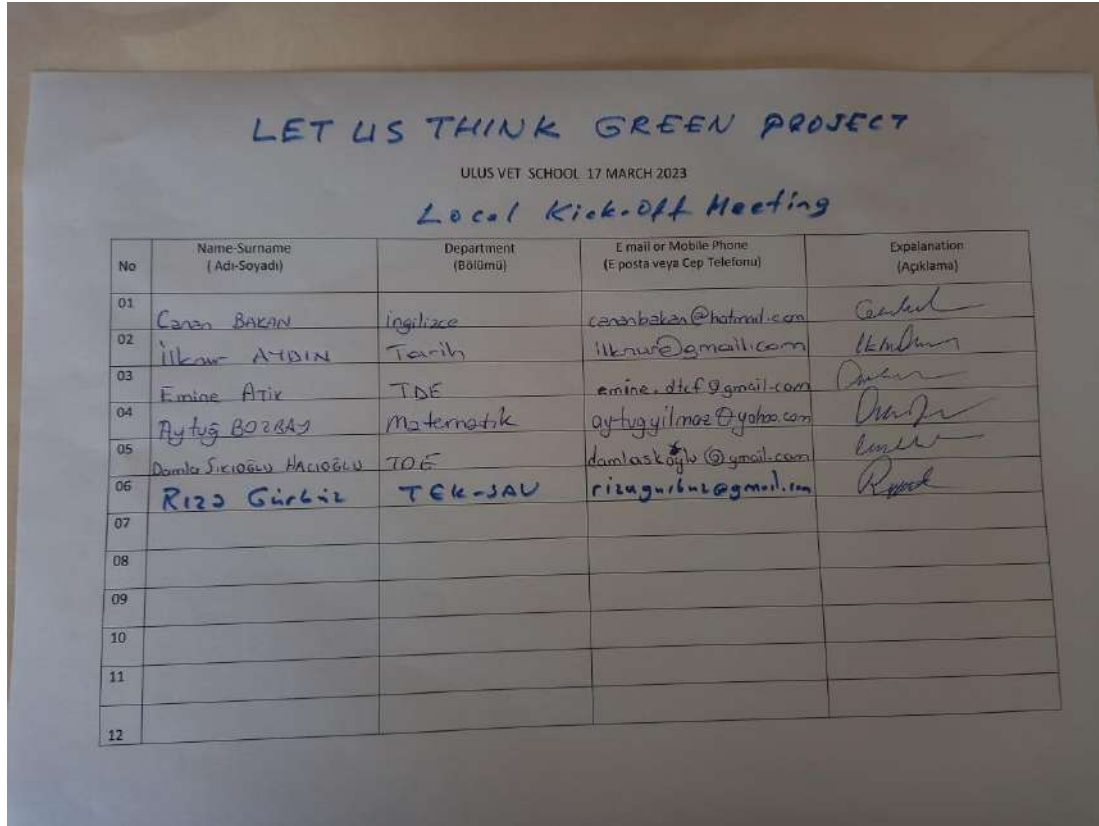 LET US THINK GREEN PROJECT
ULUS VET SCHOOL 17 MARCH 2023
Local Kick-Off Meeting
No Name-Surname Department E mail or Mobile Phone Expalanation
( Adı-Soyadı) (Bölümü) (E posta veya Cep Telefonu) (Açıklama)
01 Canan BAKAN ingilizce cananbakan@hotmail.com
02 İlknur AYDIN Tarih ilknur@gmail.com
03 Emine ATİK TDE emine.dtcf@gmail.com
04 Aytuğ BOZBAY Matematik aytugyilmaz@yahoo.com
05 Damla SIKIOĞLU HACIOĞLU TDE @gmail.com
06 Rıza Gürbüz TEK-SAV rizagurbuz@gmail.com
07
08
09
10
11
12